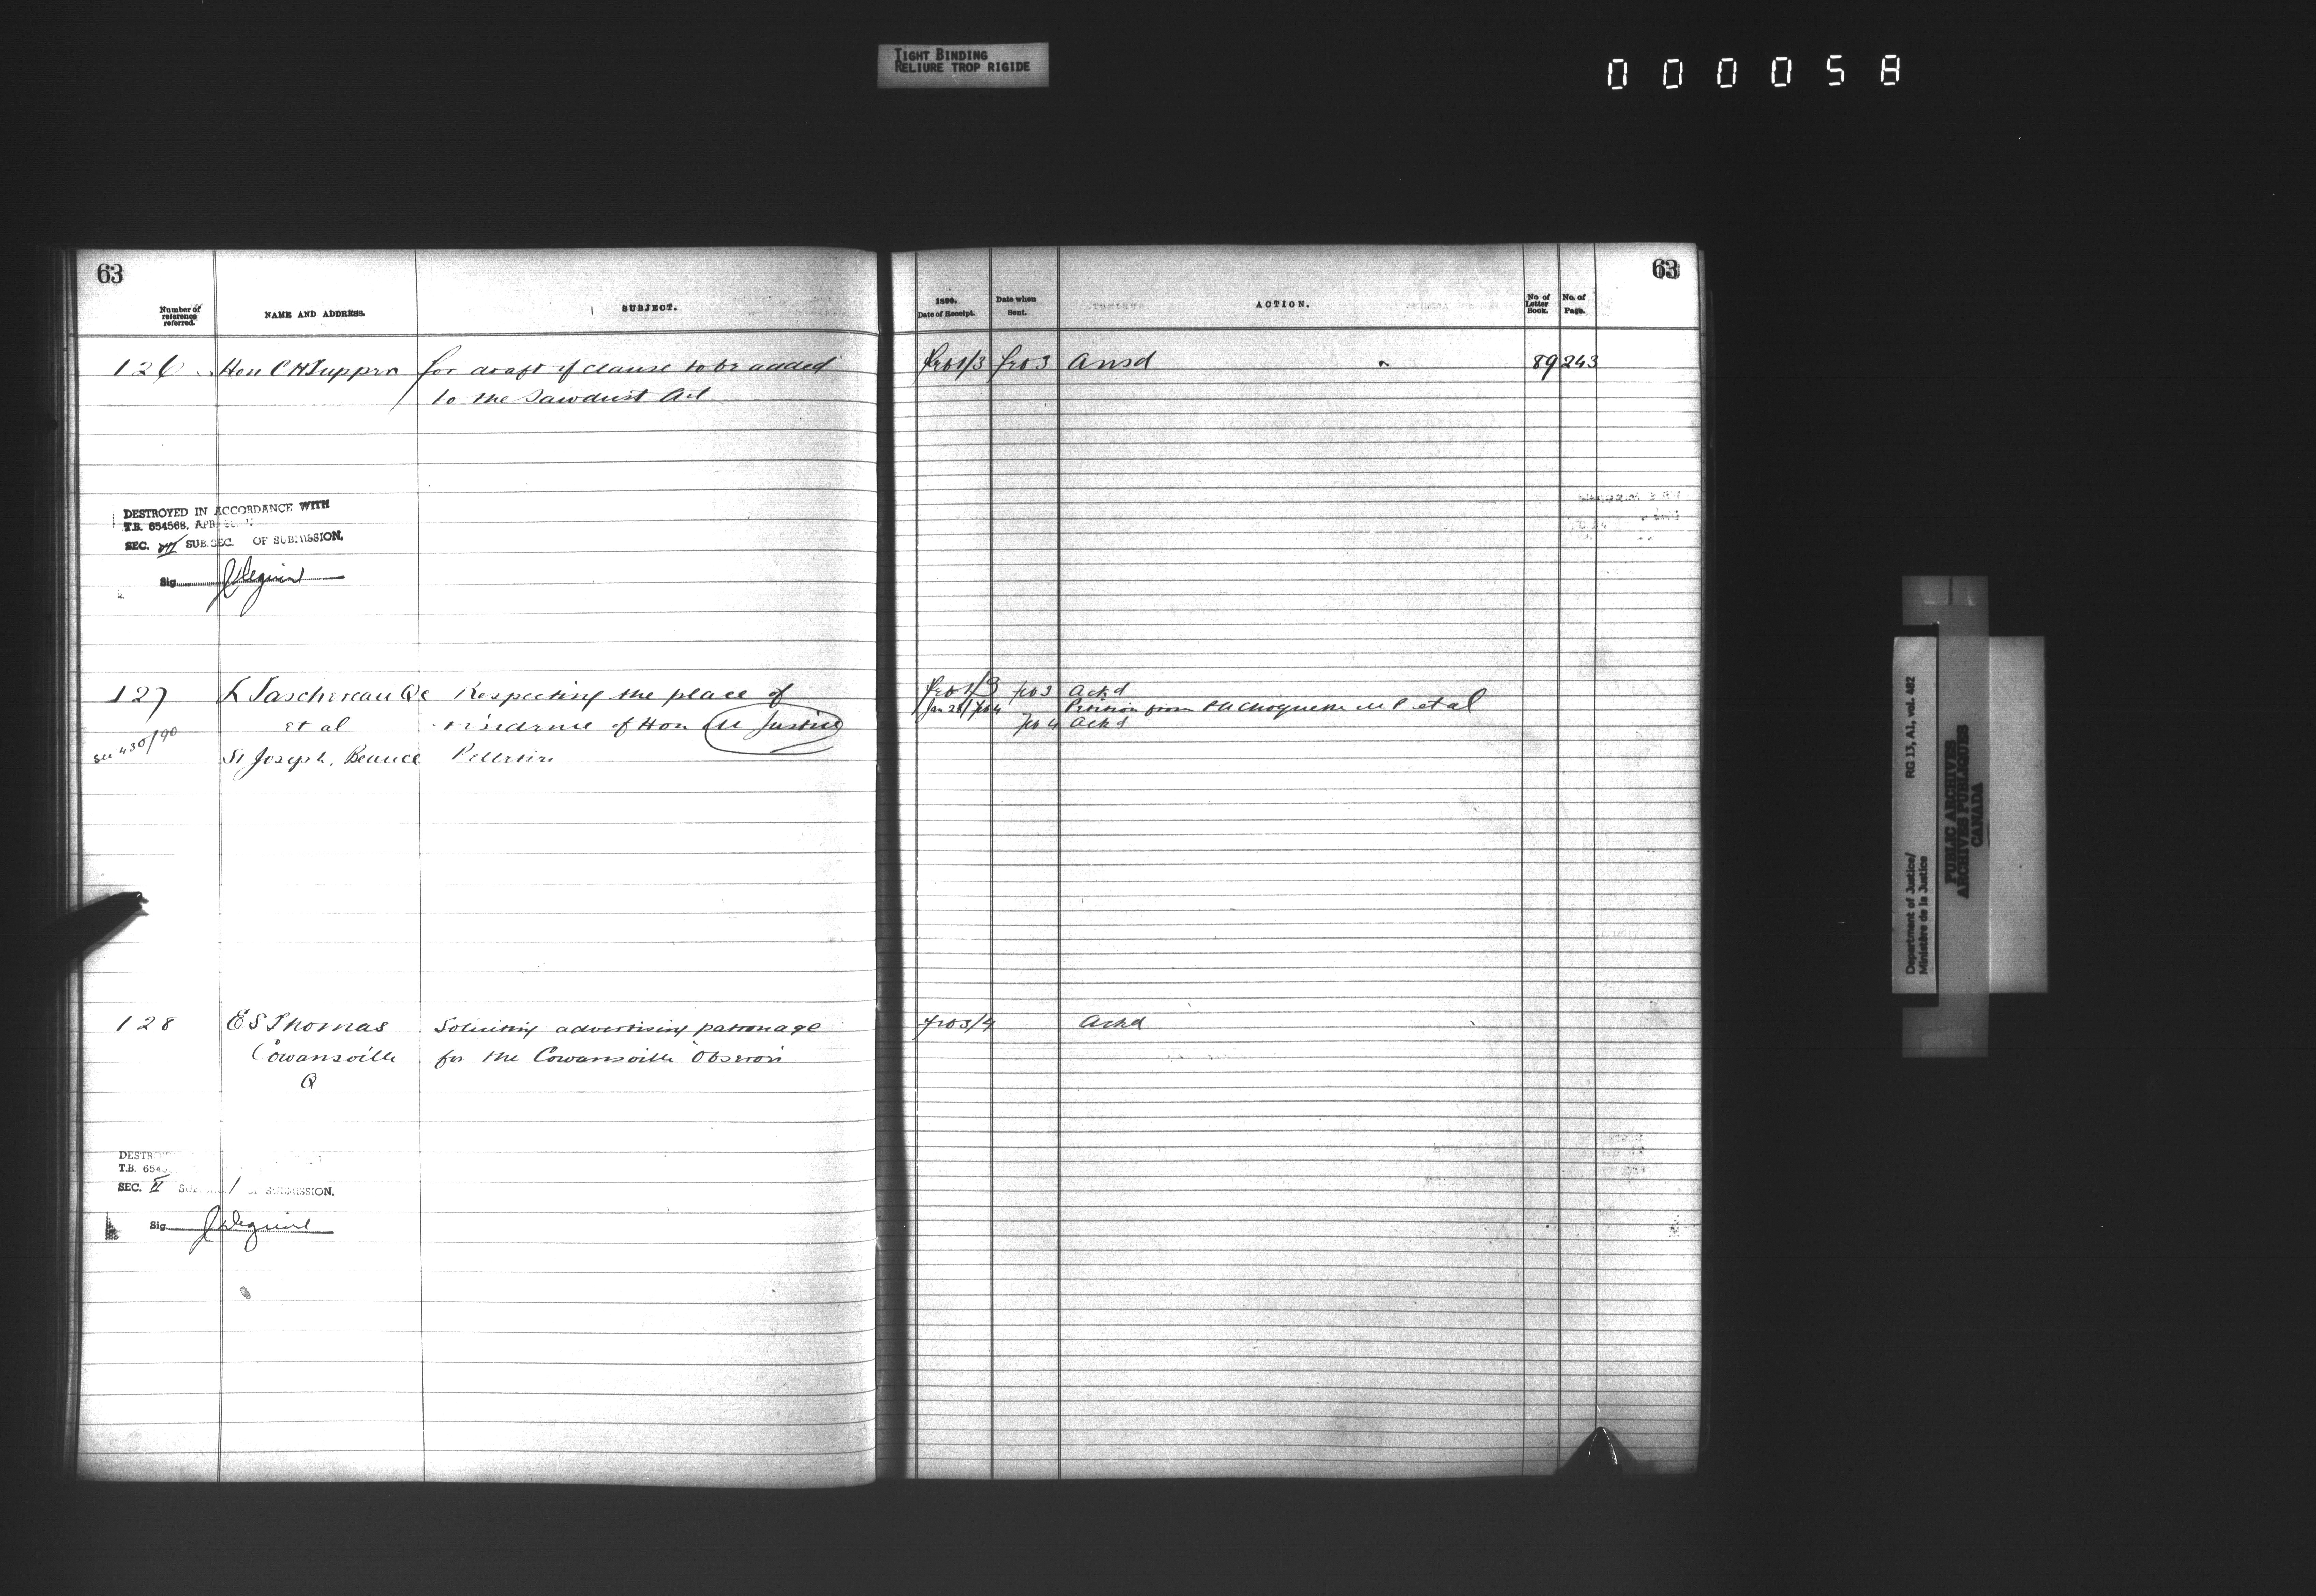 TIGHT BINDING
RELIURE TROP RIGIDE
000058
63
Number of reference referred.
NAME AND ADDRESS.
SUBJECT.
126 Hon C H Tupper for draft of clause to be added
to the Sawdust Act
DESTROYED IN ACCORDANCE WITH
T.B. 654568, APR
SEC. VII SUB.SEC. OF SUBMISSION.
Sig.
127 L Taschereau QC Respecting the place of
et al residence of Hon M Justice
see 430/90
St Joseph. Beauce Pelletier
128 E S Thomas Soliciting advertising patronage
Cowansville for the Cowansville Observer
Q
DESTROYE
T.B. 654
SEC. II SUB.SEC. 1 OF SUBMISSION.
Sig.
63
1890.
Date of Receipt.
Date when Sent.
ACTION.
No of Letter Book.
No. of Page.
Feb 1/3 Feb 3 Ansd 89 243
Feb 1/3 Feb 3 Ackd
Jan 28/Feb 4 Petition from P A Choquette M P et al
Feb 4 Ackd
Feb 3/4 Ackd
Department of Justice/
Ministère de la Justice
RG 13, A1, vol. 482
PUBLIC ARCHIVES
ARCHIVES PUBLIQUES
CANADA